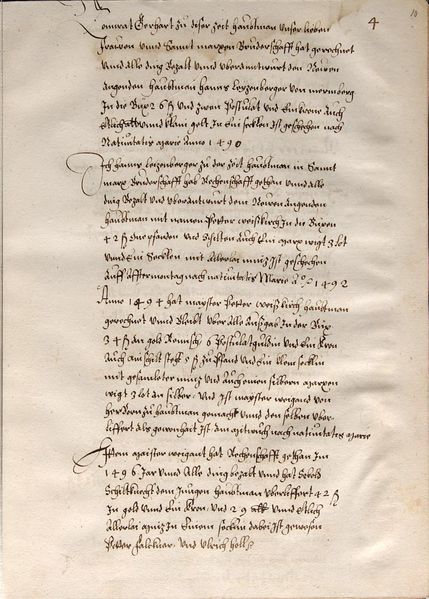 4
10
Connrat Gerhart zu diser Zeit haubtman unser lieben
frauen unnd Sannt marxen Bruderschafft hat gerechnet
unnd Alle ding Bezalt und uberantwurt dem Neuen
angenden haubtman hanns Leyzenberger von nurmberg
In die Bux 26 und zwen Postulat und Ein krone Auch
Etlich unnd klain gelt In Eim secklen Ist geschehen nach
Nativitatis marie Anno 1490
Ich hanns Leyzenberger zu der Zeit haubtman in Sannt
marx Bruderschafft hab Rechenschafft gethan unnd Alle
ding Bezalt und uberantwurt dem Neuen angenden
haubtman mit namen Petter weisskirch In die Buxen
42 und Schilten Auch Ein marx wigt 3 lot
unnd Ein Secklen mit Allerlei muntz Ist geschehen
Auff Afftermontag nach nativitatis Marie A° 1492
Anno 1494 hat mayster Petter weisskirch haubtman
gerechnet unnd Bleibt uber Alle Aussgab In der Bux
34 An gold Reinisch 6 Postulatguldin und Ein kron
Auch am schilt steckt 5 zu Pfand und Ein klein secklin
mit gesamleter muntz und Auch einen silberin marxen
wigt 3 lot An silber Und Ist mayster weigand von
zu haubtman gemacht unnd den selben uber-
liffert Als gewonhait Ist Am mitwuch nach nativitatis marie
Ittem maister weigant hat Rechenschafft gethan Im
1496 Jar unnd Alle ding bezalt und hat Sebolt
Schiltknecht dem Jungen haubtman uberliffert 42
In gold und Ein kron und 29 unnd Etlich
Allerlai muntz In Einem secklin dabei Ist gewesen
Petter Falckner Und Ulrich